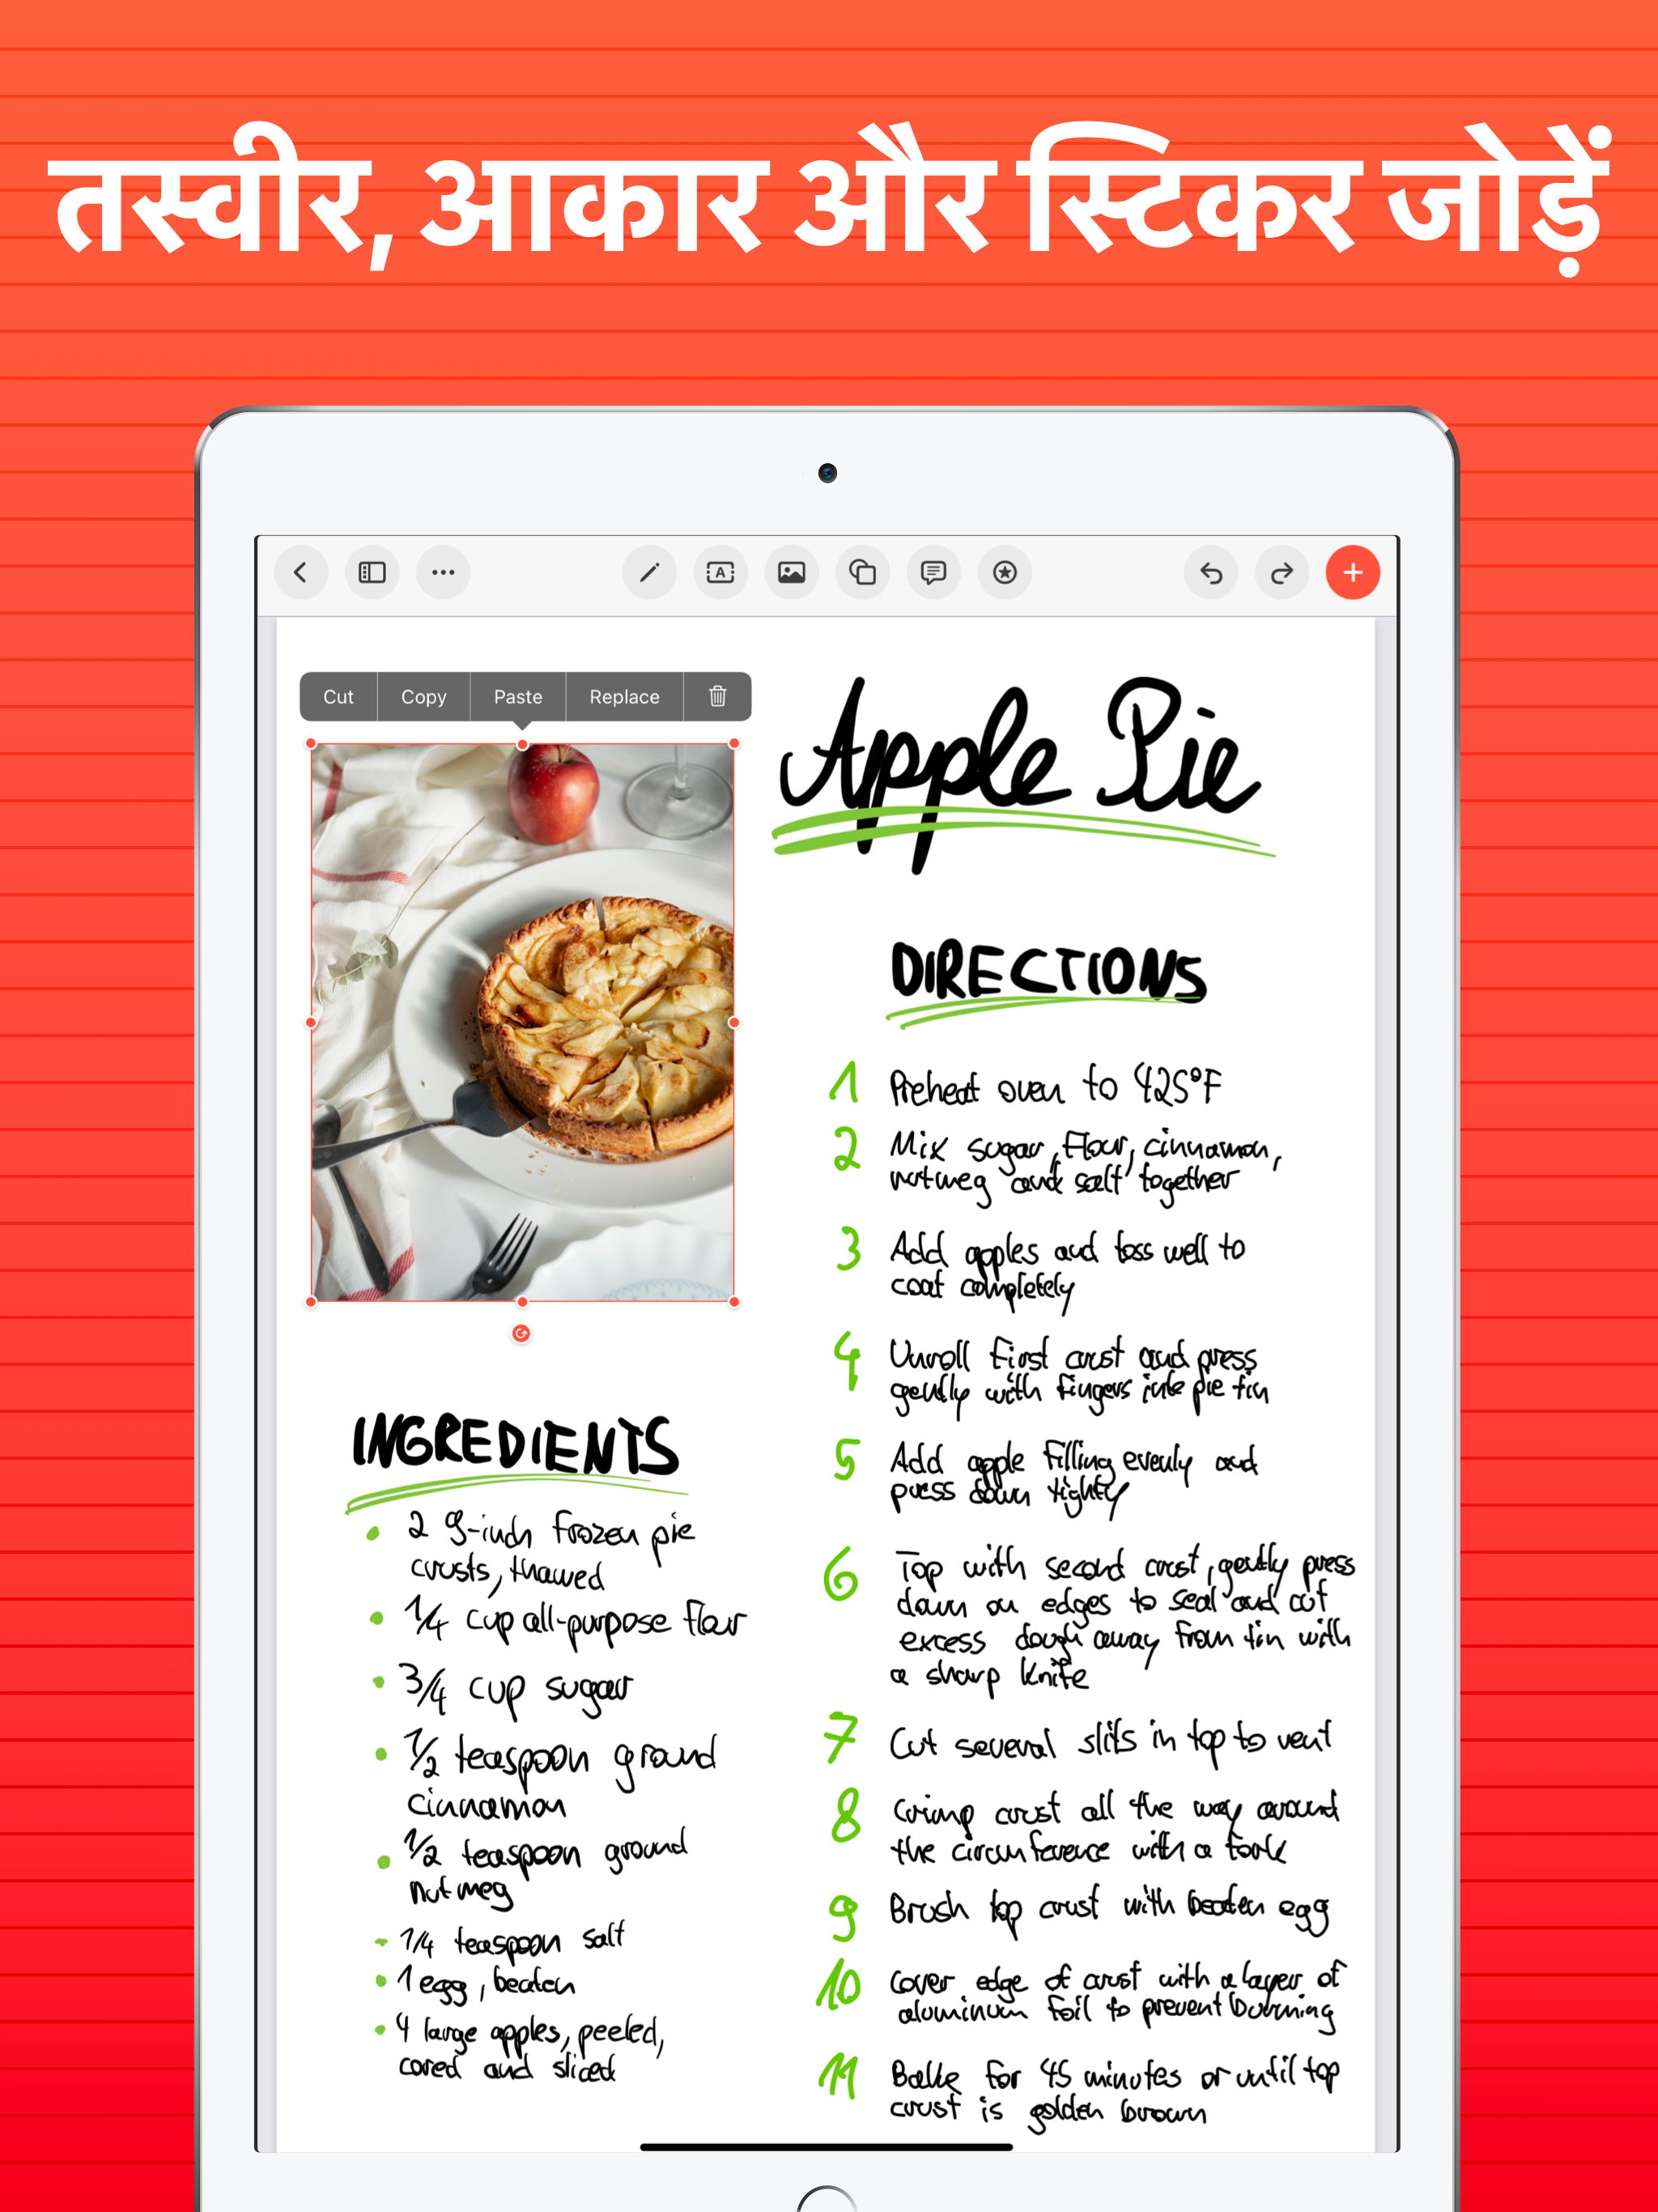 तस्वीर, आकार और स्टिकर जोड़ें
A
Cut Copy Paste Replace
Apple Pie
INGREDIENTS
• 2 9-inch frozen pie
crusts, thawed
• 1/4 cup all-purpose flour
• 3/4 cup sugar
• 1/2 teaspoon ground
cinnamon
• 1/2 teaspoon ground
nutmeg
• 1/4 teaspoon salt
• 1 egg, beaten
• 4 large apples, peeled,
cored and sliced
DIRECTIONS
1 Preheat oven to 425°F
2 Mix sugar, flour, cinnamon,
nutmeg and salt together
3 Add apples and toss well to
coat completely
4 Unroll first crust and press
gently with fingers into pie tin
5 Add apple filling evenly and
press down tightly
6 Top with second crust, gently press
down on edges to seal and cut
excess dough away from tin with
a sharp knife
7 Cut several slits in top to vent
8 Crimp crust all the way around
the circumference with a fork
9 Brush top crust with beaten egg
10 Cover edge of crust with a layer of
aluminum foil to prevent burning
11 Bake for 45 minutes or until top
crust is golden brown